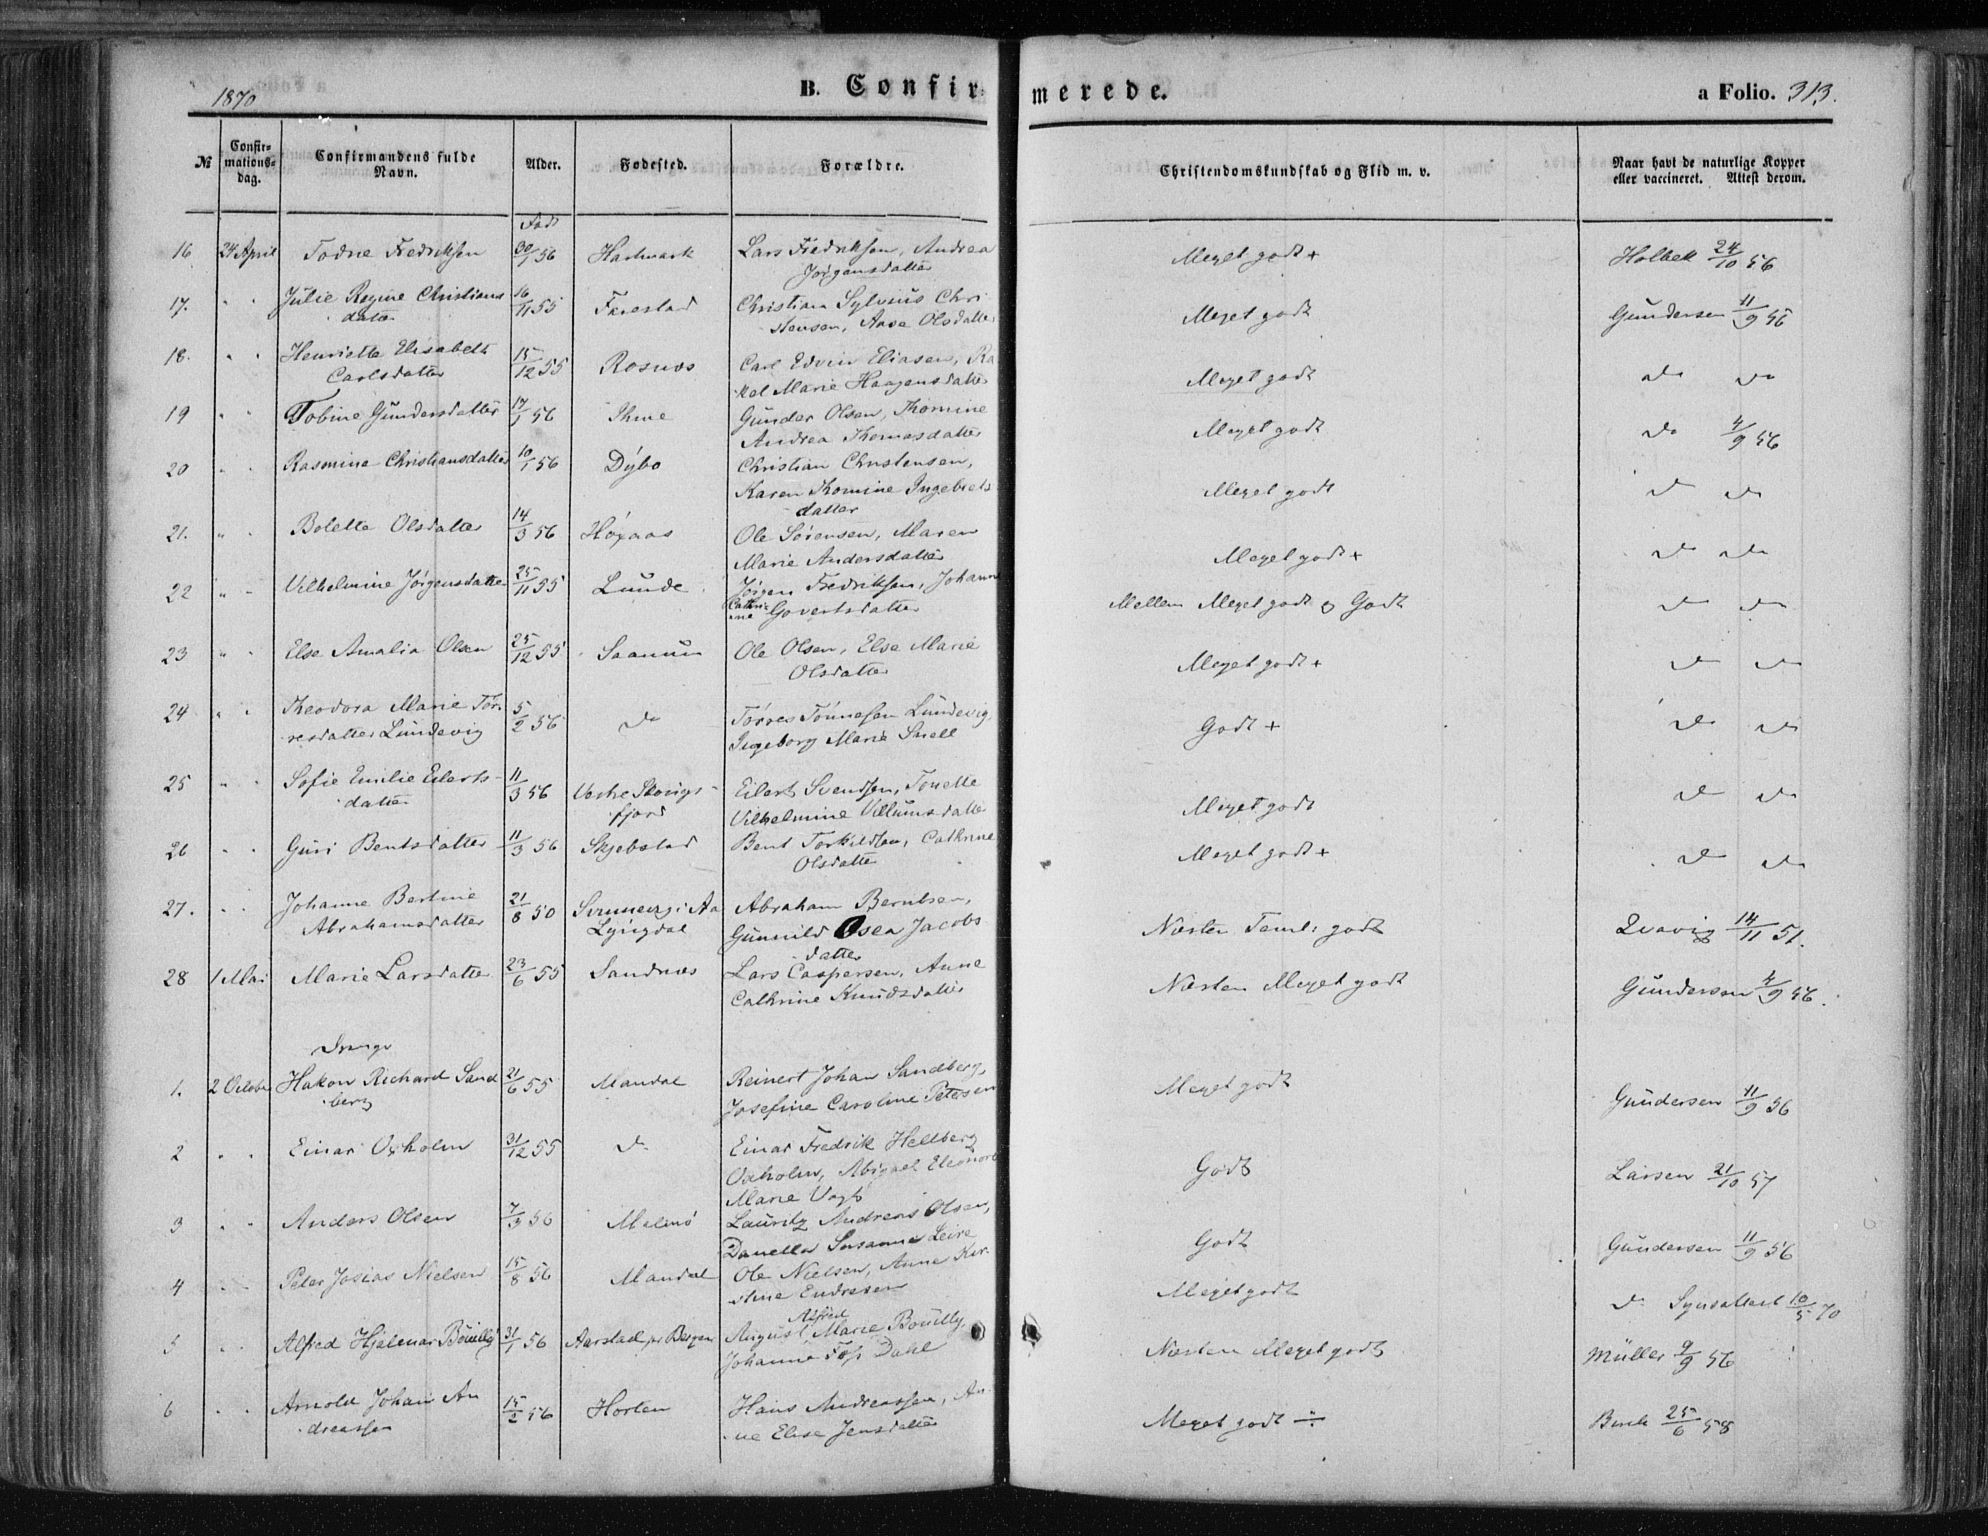 1870
B. Confir-
merede.
a Folio. 313.
№
Confir-
mations-
dag.
Confirmandens fulde
Navn.
Alder.
Fødested.
Forældre.
Christendomskundskab og Flid m. v.
Naar havt de naturlige Kopper
eller vaccineret. Attest derom.
Født
16 24 April Todne Fredriksen 30/1 56 Hartmark Lars Fredriksen, Andrea Meget godt + Holbek 24/10 56
Jørgensdatter
17. " " Julie Regine Christians 16/11 55 Farestad Christian Sylvius Chri- Meget godt Gundersen 11/9 56
datter stensen, Aase Olsdatter
18. " " Henriette Elisabeth 15/12 55 Rosnes Carl Edvin Eliasen, Ra Meget godt do do
Carlsdatter kel Marie Haagensdatter
19 " " Tobine Gundersdatter 17/1 56 Ihme Gunder Olsen, Thomine Meget godt do 4/9 56
Andrea Thomasdatter
20 " " Rasmine Christiansdatter 10/1 56 Dybo Christian Christensen, Meget godt do do
Karen Thomine Ingebrets
datter
21. " " Bolette Olsdatter 14/3 56 Høyaas Ole Sørensen, Maren Meget godt + do do
Marie Andersdatter
22 " " Vilhelmine Jørgensdatter 25/11 55 Lunde Jørgen Fredriksen, Johanne Mellem Meget godt og Godt do do
Cathrine Govertsdatter
23 " " Else Amalia Olsen 25/12 55 Saanum Ole Olsen, Else Marie Meget godt + do do
Olsdatter
24 " " Theodora Marie Tør- 5/2 56 do Tørres Tønnesen Lundevig, Godt + do do
resdatter Lundevig Ingeborg Marie Snell
25 " " Sofie Emilie Eilerts- 11/3 56 Vestre Skovgs- Eilert Svendsen, Tonette Meget godt do do
datter fjord Vilhelmine Villumsdatter
26 " " Guri Bentsdatter 11/3 56 Skjebstad Bent Torkildsen, Cathrine Meget godt + do do
Olsdatter
27. " " Johanne Bertine 21/8 50 i Aa Abraham Berntsen, Næsten Teml: godt Qvavig 14/11 51.
Abrahamsdatter Lyngdal Gunnild Osea Jacobs
datter
28 1 Mai Marie Larsdatter 23/6 55 Sandnes Lars Caspersen, Anne Næsten Meget godt Gundersen 4/9 56.
Cathrine Knudsdatter
Drenge
1. 2 October Hakon Richard Sand 21/6 55 Mandal Reinert Johan Sandberg, Meget godt Gundersen 11/9 56
berg Josefine Caroline Petersen
2 " " Einar Oxholm 31/12 55 do Einar Fredrik Hellberg Godt Larsen 21/10 57
Oxholm, Abigael Eleonore
Marie Vogt
3 " " Anders Olsen 7/3 56 Malmø Lauritz Andreas Olsen, Godt Gundersen 11/9 56
Danella Susanne Leire
4 " " Peter Josias Nielsen 15/8 56 Mandal Ole Nielsen, Anne Kir- Meget godt do Synsattest 10/5 70
stine Endresen
5 " " Alfred Hjalmar Bouilly 31/1 56 Aarstad pr Bergen August Alfred Marie Bouilly, Næsten Meget godt Müller 9/9 56
Johanne Dahl
6 " " Arnold Johan An 15/2 56 Horten Hans Andreassen, An- Meget godt ÷ Busch 25/6 58
dreassen ne Elise Jensdatter